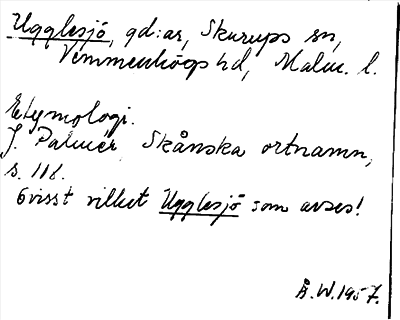 Ugglesjö, gd:ar, Skurups sn,
Vemmenhögs hd, Malm. l.
Etymologi.
J. Palmér Skånska ortnamn,
s. 118.
Ovisst vilket Ugglesjö som avses!
Å.W.1957.